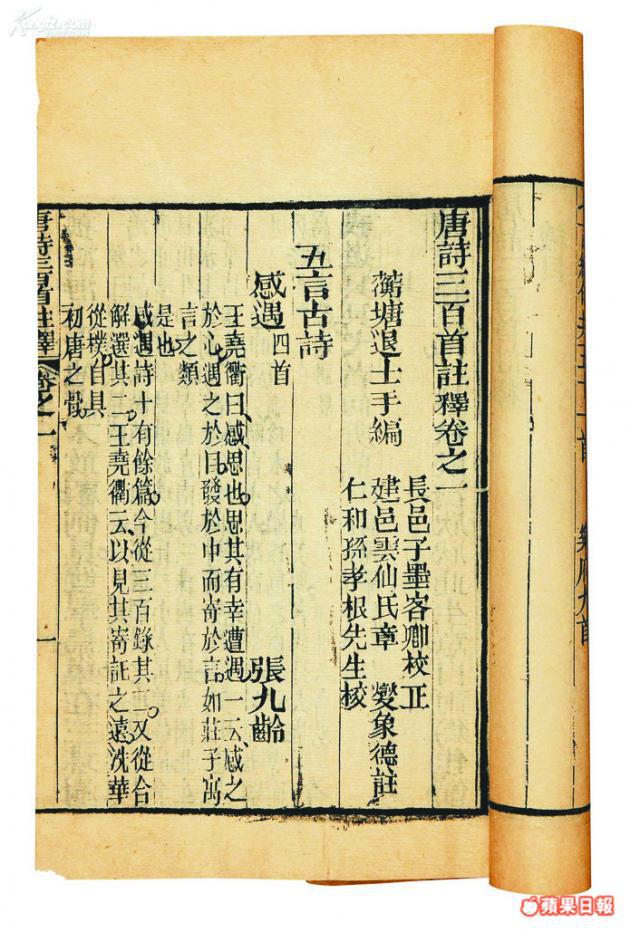 樂府九首
唐詩三百首註釋卷之一
蘅塘退士手編
長邑子墨客卿校正
建邑雲仙氏章 燮象德註
仁和孫孝根先生校
五言古詩
感遇 四首 張九齡
王堯衢曰感思也思其有幸遭遇一云感之
於心遇之於目發於中而寄於言如莊子寓
言之類
是也
感遇詩十有餘篇今從三百錄其二又從合
解選其二王堯衢云以見其寄託之遠洗華
從樸自具
初唐之骨
唐詩三百首註釋 卷之一 一
Kongfz.com
蘋果日報